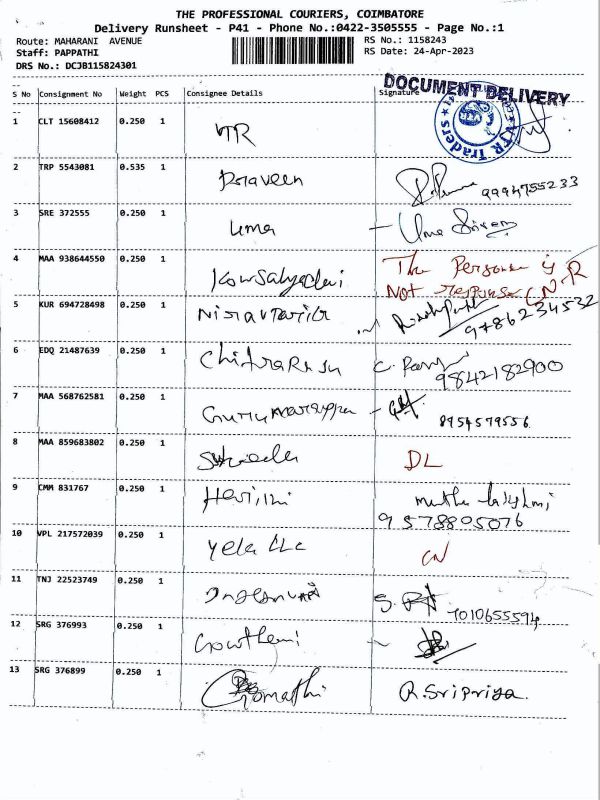 THE PROFESSIONAL COURIERS, COIMBATORE
Delivery Runsheet - P41 - Phone No.:0422-3505555 - Page No.:1
Route: MAHARANI AVENUE RS No.: 1158243
Staff: PAPPATHI RS Date: 24-Apr-2023
DRS No.: DCJB115824301
DOCUMENT DELIVERY
S No Consignment No Weight PCS Consignee Details Signature
1 CLT 15608412 0.250 1 VTR
VTR Traders
2 TRP 5543081 0.535 1 Praveen 9994755233
3 SRE 372555 0.250 1 Uma
4 MAA 938644550 0.250 1 The Persone is
Not response CN-R
5 KUR 694728498 0.250 1 9786234532
6 EDQ 21487639 0.250 1 ChitraRasu
9842182900
7 MAA 568762581 0.250 1
8954579556
8 MAA 859683802 0.250 1 DL
9 CMM 831767 0.250 1
9578805076
10 VPL 217572039 0.250 1 Yela LLC CN
11 TNJ 22523749 0.250 1
7010655594
12 SRG 376993 0.250 1 Gowthami
13 SRG 376899 0.250 1 Gomathi R. Sripriya.